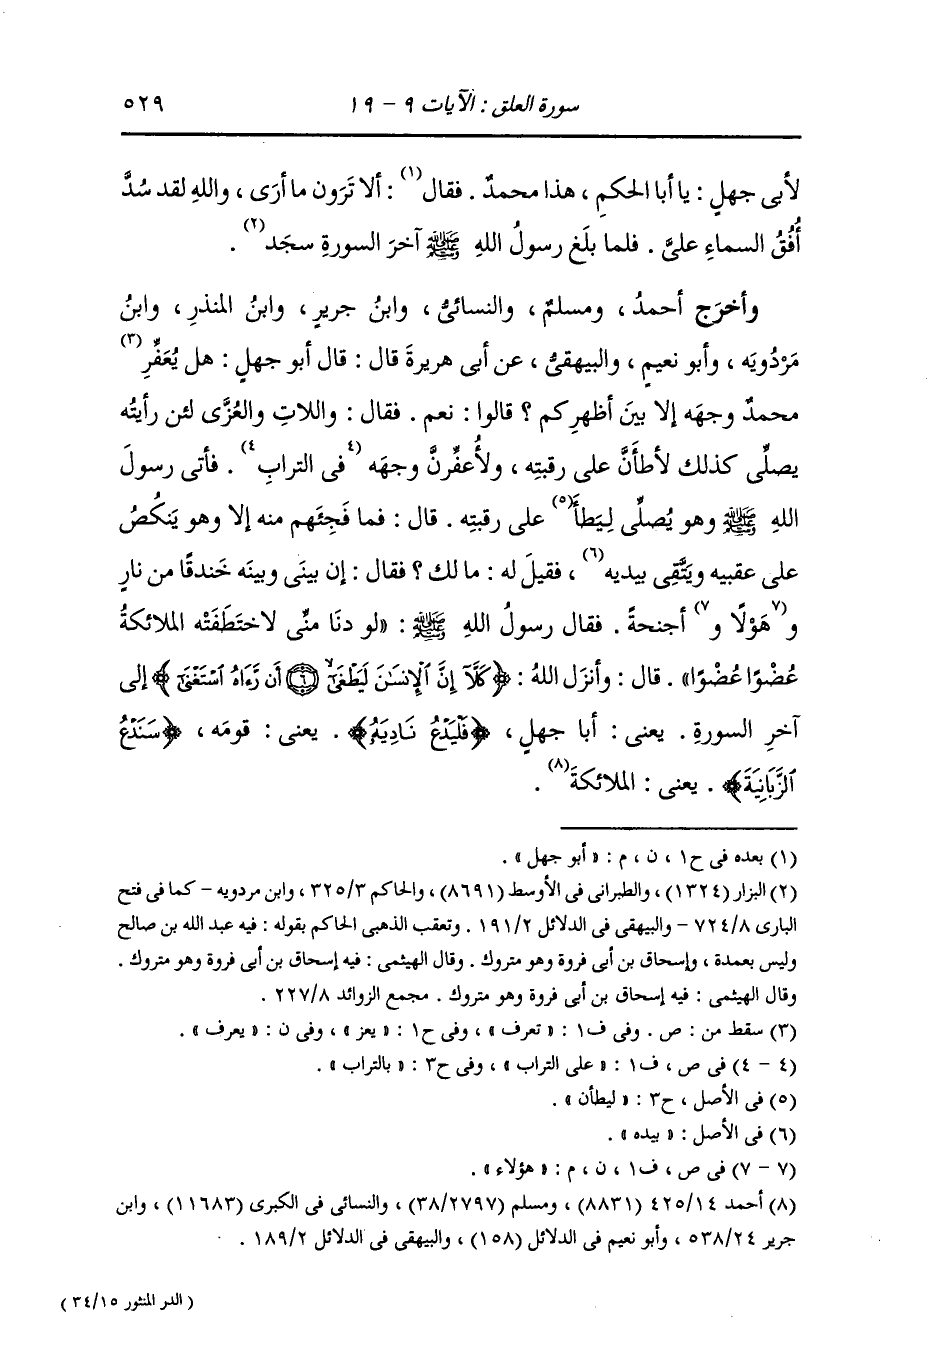 سورة العلق : الآيات ٩ - ١٩ ٥٢٩
لأبى جهلٍ : يا أبا الحكمِ ، هذا محمدٌ . فقال(١) : ألا تَرَون ما أرَى ، واللهِ لقد سُدَّ
أُفُقُ السماءِ علىَّ . فلما بلَغ رسولُ اللهِ ﷺ آخرَ السورةِ سجَد(٢) .
وأخرَج أحمدُ ، ومسلمٌ ، والنسائىُّ ، وابنُ جريرٍ ، وابنُ المنذرِ ، وابنُ
مَرْدُويَه ، وأبو نعيمٍ ، والبيهقىُّ ، عن أبى هريرةَ قال : قال أبو جهلٍ : هل يُعَفِّرِ(٣)
محمدٌ وجهَه إلا بينَ أظهرِكم ؟ قالوا : نعم . فقال : واللاتِ والعُزَّى لئن رأيتُه
يصلِّى كذلك لأطأنَّ على رقبتِه ، ولأُعفِّرنَّ وجهَه (٤فى الترابِ٤) . فأتى رسولَ
اللهِ ﷺ وهو يُصلِّى لِيَطأَ(٥) على رقبتِه . قال : فما فَجِئَهم منه إلا وهو يَنكُصُ
على عقبيه ويَتَّقِى بيديه(٦) ، فقيلَ له : ما لك ؟ فقال : إن بينَى وبينَه خَندقًا من نارٍ
و(٧هَوْلًا و٧) أجنحةً . فقال رسولُ اللهِ ﷺ : «لو دنَا منِّى لاختَطَفَتْه الملائكةُ
عُضْوًا عُضْوًا» . قال : وأنزَل اللهُ : ﴿كَلَّآ إِنَّ ٱلْإِنسَـٰنَ لَيَطْغَىٰٓ ۝٦ أَن رَّءَاهُ ٱسْتَغْنَىٰٓ﴾ إلى
آخرِ السورةِ . يعنى : أبا جهلٍ ، ﴿فَلْيَدْعُ نَادِيَهُۥ﴾ . يعنى : قومَه ، ﴿سَنَدْعُ
ٱلزَّبَانِيَةَ﴾ . يعنى : الملائكةَ(٨) .
(١) بعده فى ح١ ، ن ، م : « أبو جهل » .
(٢) البزار (١٣٢٤) ، والطبرانى فى الأوسط (٨٦٩١) ، والحاكم ٣٢٥/٣ ، وابن مردويه - كما فى فتح
البارى ٧٢٤/٨ - والبيهقى فى الدلائل ١٩١/٢ . وتعقب الذهبى الحاكم بقوله : فيه عبد الله بن صالح
وليس بعمدة ، وإسحاق بن أبى فروة وهو متروك . وقال الهيثمى : فيه إسحاق بن أبى فروة وهو متروك .
وقال الهيثمى : فيه إسحاق بن أبى فروة وهو متروك . مجمع الزوائد ٢٢٧/٨ .
(٣) سقط من : ص . وفى ف١ : « تعرف » ، وفى ح١ : « يعز » ، وفى ن : « يعرف » .
(٤ - ٤) فى ص ، ف١ : « على التراب » ، وفى ح٣ : « بالتراب » .
(٥) فى الأصل ، ح٣ : « ليطأن » .
(٦) فى الأصل : « بيده » .
(٧ - ٧) فى ص ، ف١ ، ن ، م : « هؤلاء » .
(٨) أحمد ٤٢٥/١٤ (٨٨٣١) ، ومسلم (٣٨/٢٧٩٧) ، والنسائى فى الكبرى (١١٦٨٣) ، وابن
جرير ٥٣٨/٢٤ ، وأبو نعيم فى الدلائل (١٥٨) ، والبيهقى فى الدلائل ١٨٩/٢ .
( الدر المنثور ٣٤/١٥ )